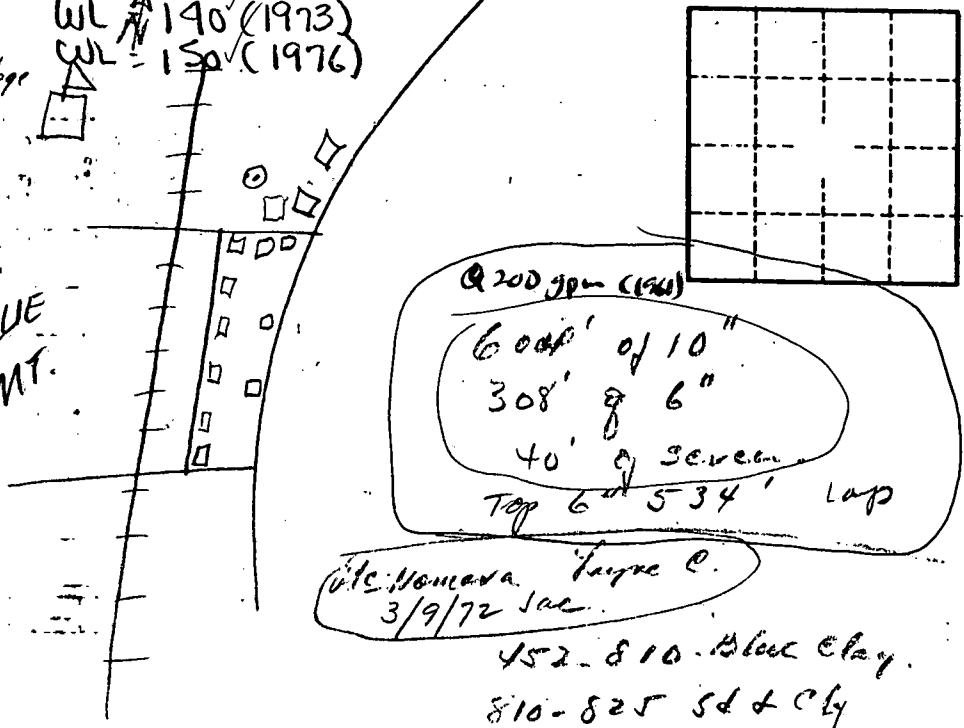 WL 140' (1973)
WL = 150' (1976)
UE
NT.
Q 200 gpm (1961)
of 10"
308' of 6"
40' of Screen
Top 6" 534' Lap
3/9/72
452-810-Blue Clay.
810-825 Sd & Cly